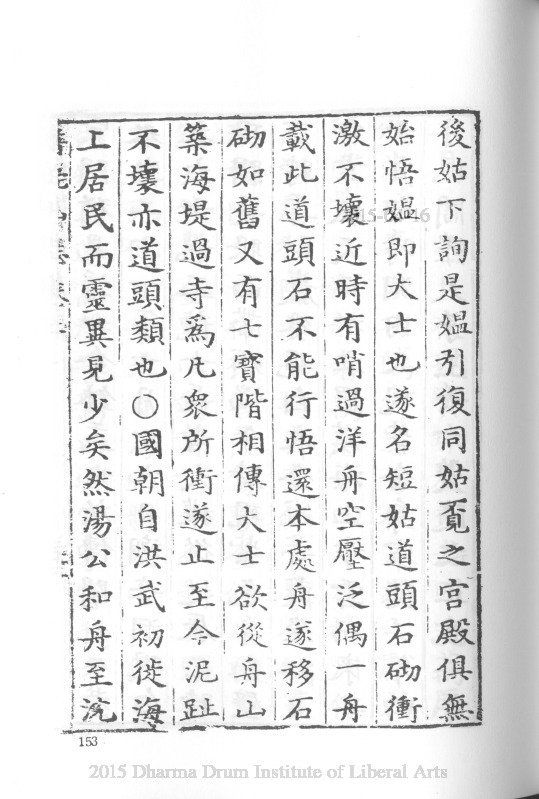 後姑下詢是媼引復同姑覔之宫殿俱無
始悟媼即大士也遂名短姑道頭石砌衝
激不壞近時有哨過洋舟空壓泛偶一舟
載此道頭石不能行悟還本處舟遂移石
砌如舊又有七寳階相傳大士欲從舟山
築海堤過寺爲凡衆所衝遂止至今泥趾
不壞亦道頭類也〇國朝自洪武初徙海
上居民而靈異見少矣然湯公和舟至浣
153
2015 Dharma Drum Institute of Liberal Arts